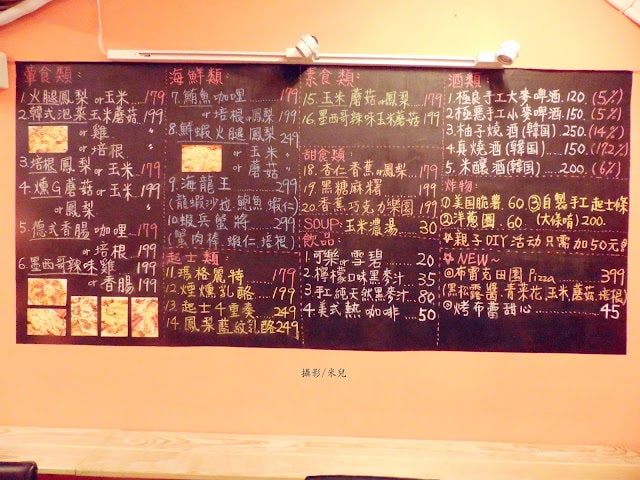 葷食類:
1.火腿鳳梨or玉米...179
2.韓式泡菜玉米蘑菇199
or 雞 〃
or 培根 〃
3.培根鳳梨or玉米...199
4.燻G蘑菇or玉米..199
or鳳梨 199
5.德式香腸咖哩...199
or培根 199
6.墨西哥辣味雞 199
or香腸199
海鮮類:
7.鮪魚咖哩 199
or培根or鳳梨199
8.鮮蝦火腿鳳梨249
or玉米 〃
or蘑菇 〃
9.海龍王 299
(龍蝦沙拉鮑魚蝦仁)
10.蝦兵蟹將 299
(蟹肉棒.蝦仁.培根)
起士類:
11.瑪格麗特 199
12.煙燻乳酪 199
13.起士4重奏 249
14.鳳梨藍紋乳酪249
素食類:
15.玉米蘑菇or鳳梨...179
16.墨西哥辣味玉米蘑菇199
甜食類:
18.杏仁香蕉or鳳梨...179
19.黑糖麻糬 199
20.香蕉巧克力樂園199
SOUP:玉米濃湯 30
飲品:
1.可樂or雪碧 20
2.檸檬口味黑麥汁 35
3.手工純天然黑麥汁 80
4.美式熱咖啡 50
酒類:
1.極良手工大麥啤酒.120.(5%)
2.極惡手工小麥啤酒.150.(5%)
3.柚子燒酒(韓国)...250.(14%)
4.真燒酒(韓国) 150.(17.2%)
5.米釀酒(韓国) 200.(6%)
炸物:
①美国脆薯.60 ③自製手工起士條
②洋蔥圈.60 (大條唷)200.
親子DIY活动只需加50元
NEW~
◎布雷克田園Pizza 399
(黑松露醬.青菜花.玉米蘑菇.培根)
◎烤布蕾甜心 45
攝影/米兒